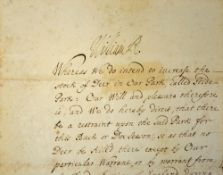 William R.
Whereas We do intend to increase the
Stock of Deer in Our Park called Hide
Park: Our Will and pleasure therefore
is, and We do hereby direct, that there
be a restraint upon the said Park for
this Buck and Doe Season, so as that no
Deer be killed there except by Our
particular Warrant, or by warrant from